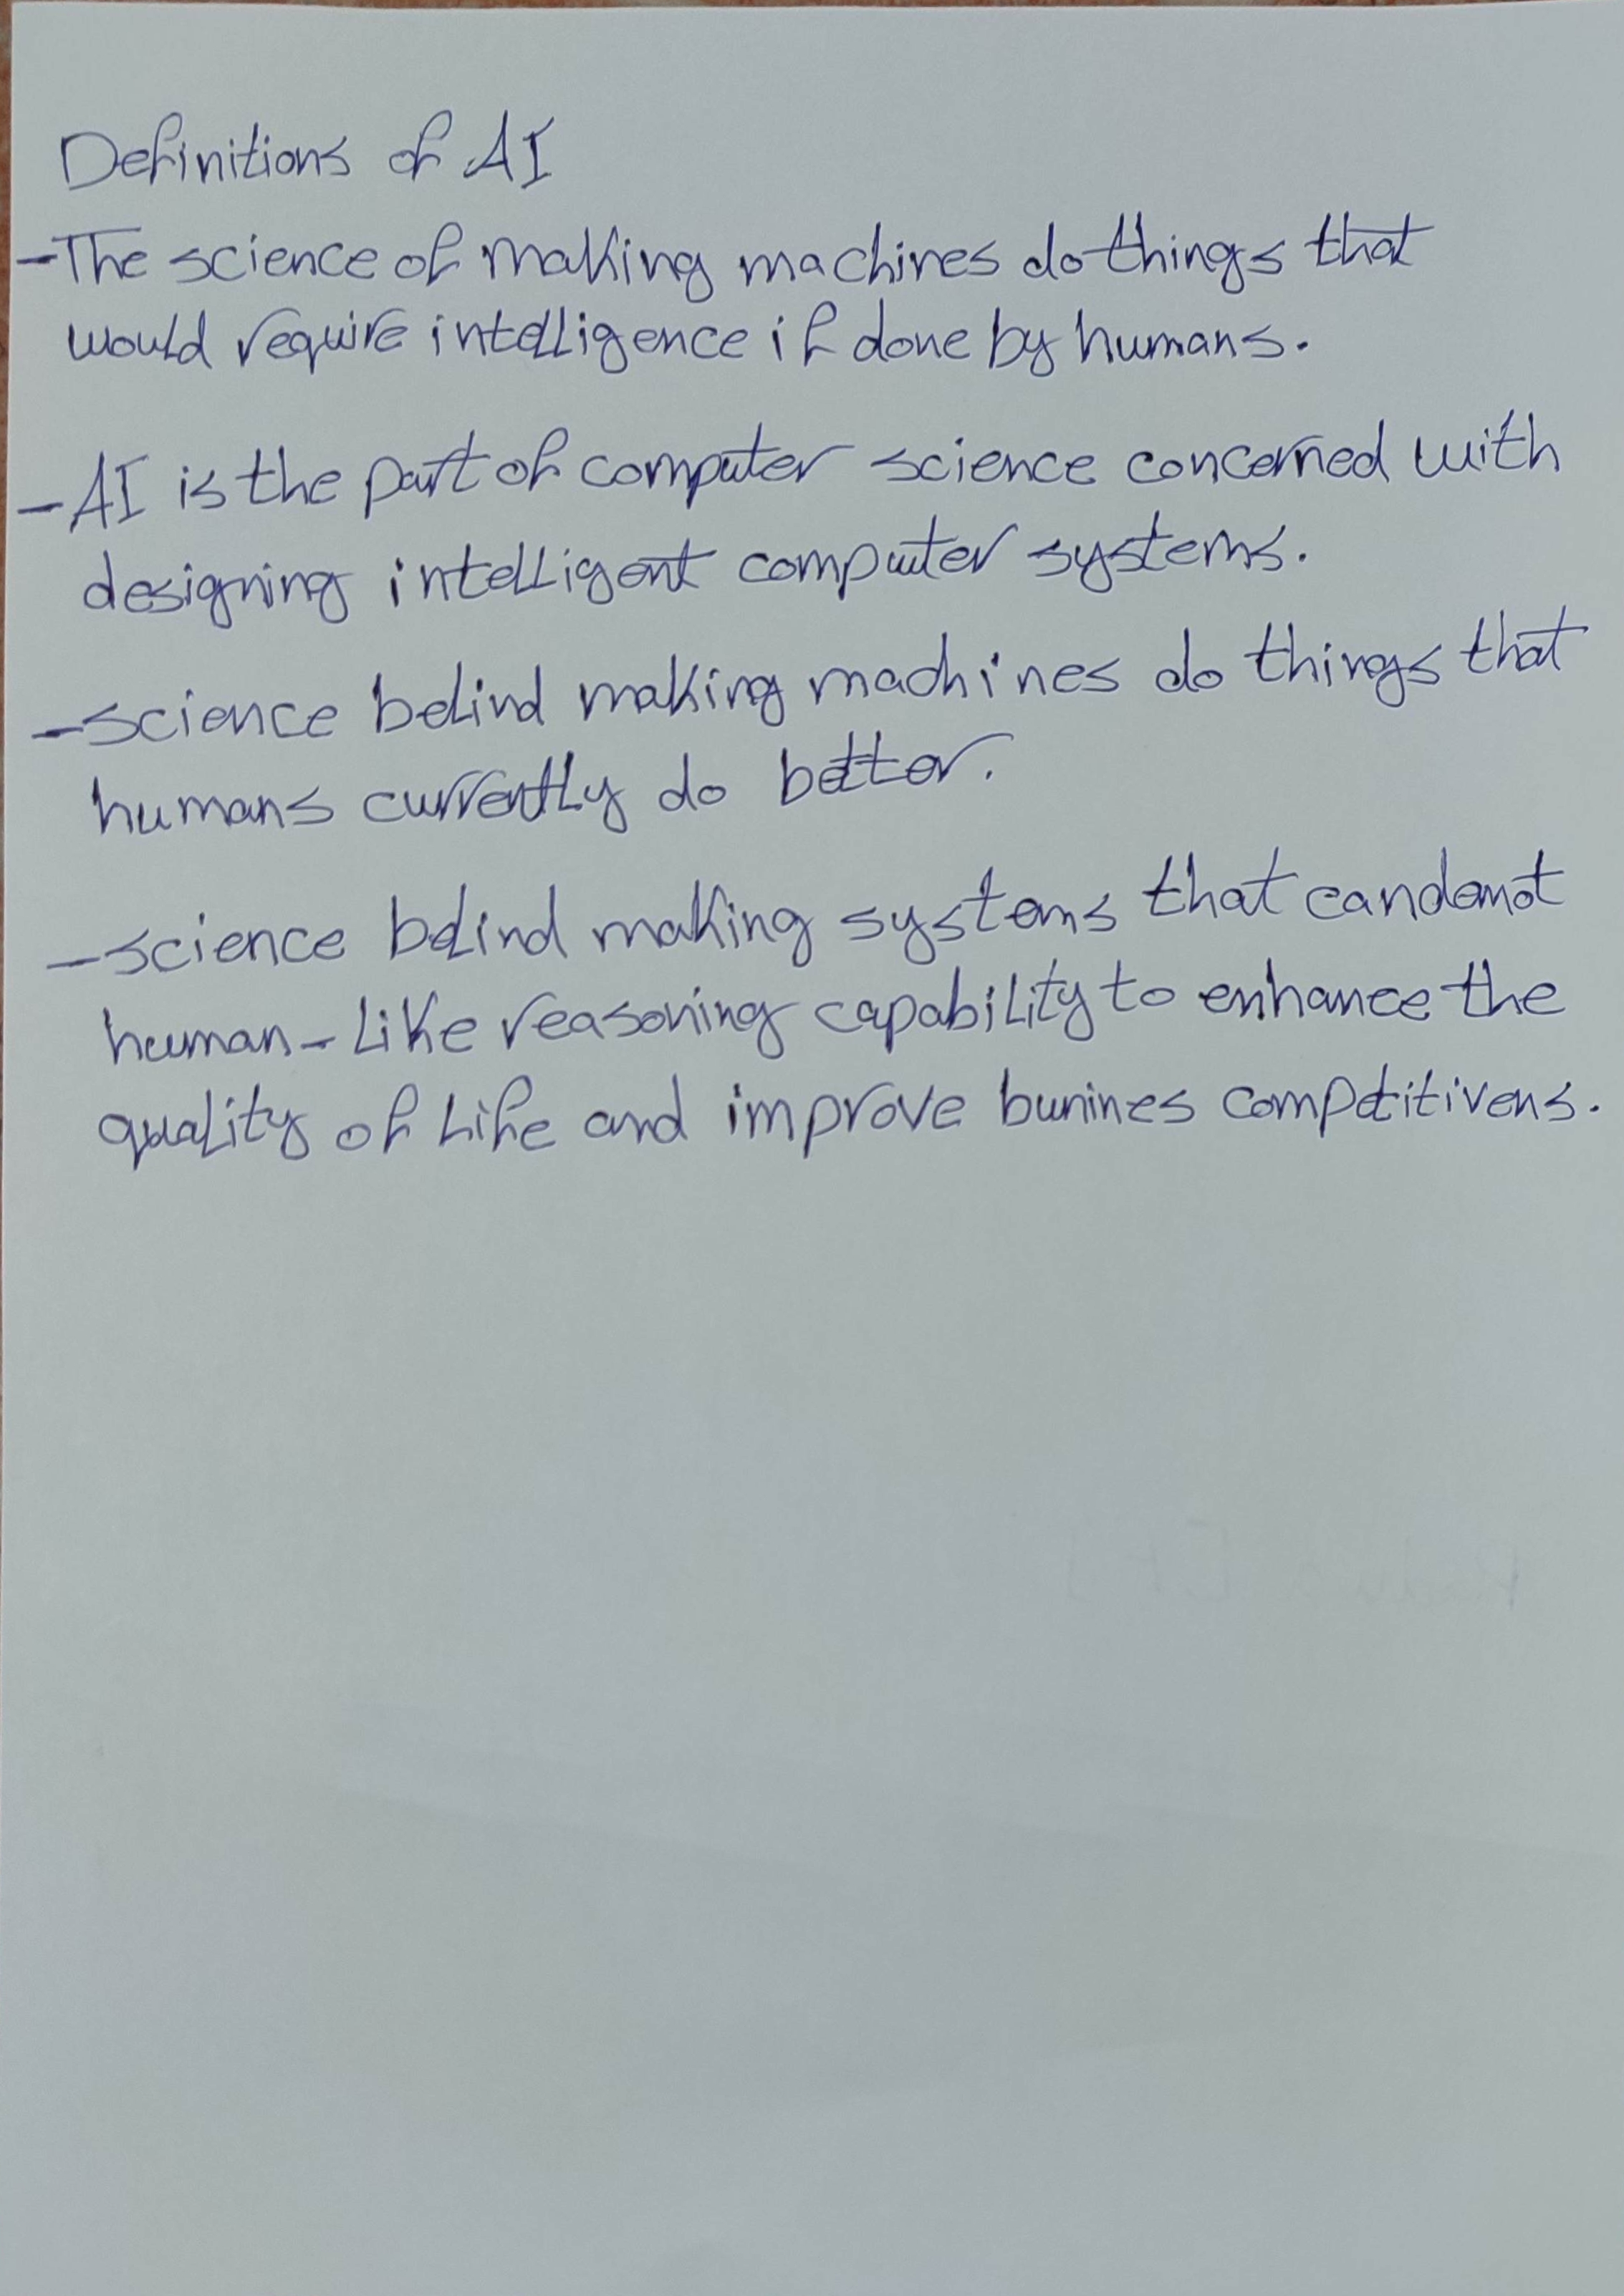 Definitions of AI
- The science of making machines do things that
would require intelligence if done by humans.
- AI is the part of computer science concerned with
designing intelligent computer systems.
- science behind making machines do things that
humans currently do better.
- science behind making systems that can
human-like reasoning capability to enhance the
quality of life and improve bunines competitivens.